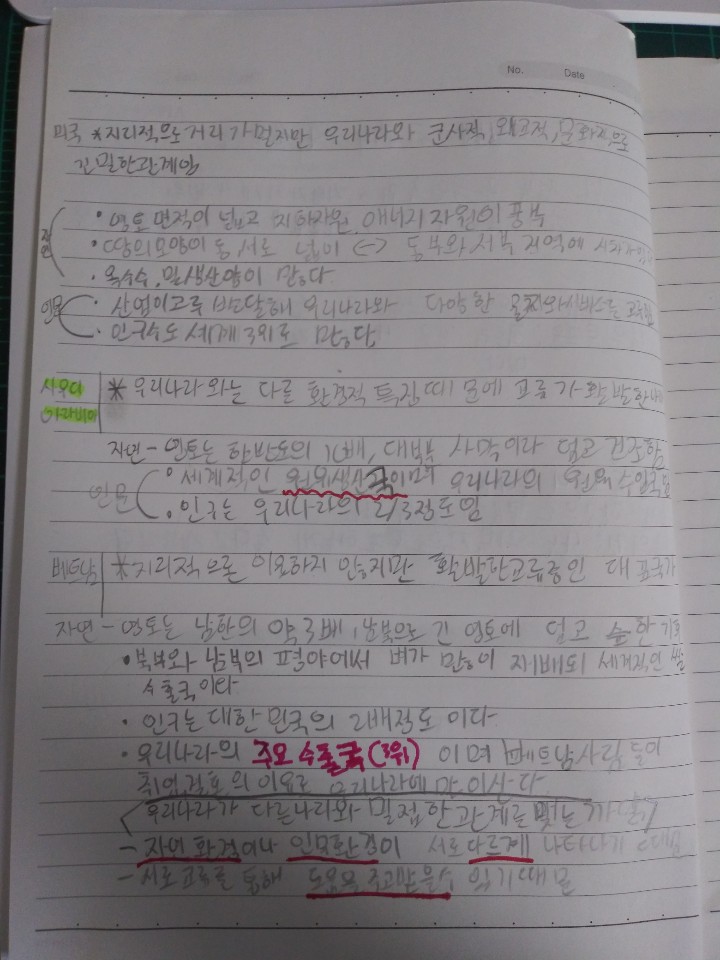 No. Date
미국 *지리적으로 거리가 멀지만 우리나라와 군사적, 외교적, 문화적으로
긴밀한관계임
자연 • 영토 면적이 넓고 지하자원, 에너지 자원이 풍부
• 땅의모양이 동,서로 넓이 <-> 동부와 서부 지역에
• 옥수수, 밀생산양이 많다
인문 • 산업이고루 발달해 우리나라와 다양한 물자와서비스를
• 인구수도 세계 3위로 많다
사우디 * 우리나라와는 다른 환경적 특징 때문에 교류가 활발한
아라비아
자연 - 영토는 한반도의 10배, 대부분 사막이라 덥고 건조함
인문 • 세계적인 원유생산국이며 우리나라의 원유 수입국
• 인구는 우리나라의 2/3정도임
베트남 *지리적으론 이요하지 않지만 활발한교류중인 대표국가
자연 - 영토는 남한의 약 3배, 남북으로 긴 영토에 덥고 습한 기후
• 북부와 남북의 평야에서 벼가 많이 재배되 세계적인 쌀
수출국이다
• 인구는 대한민국의 2배정도 이다
• 우리나라의 주요 수출국(3위) 이며 베트남사람들이
취업,결혼의 이유로 우리나라에 많이산다
우리나라가 다른나라와 밀접한관계를 맺는 까닭
- 자연환경이나 인문환경이 서로다르게 나타나기 때문
- 서로교류를 통해 도움을 주고받을수 있기때문